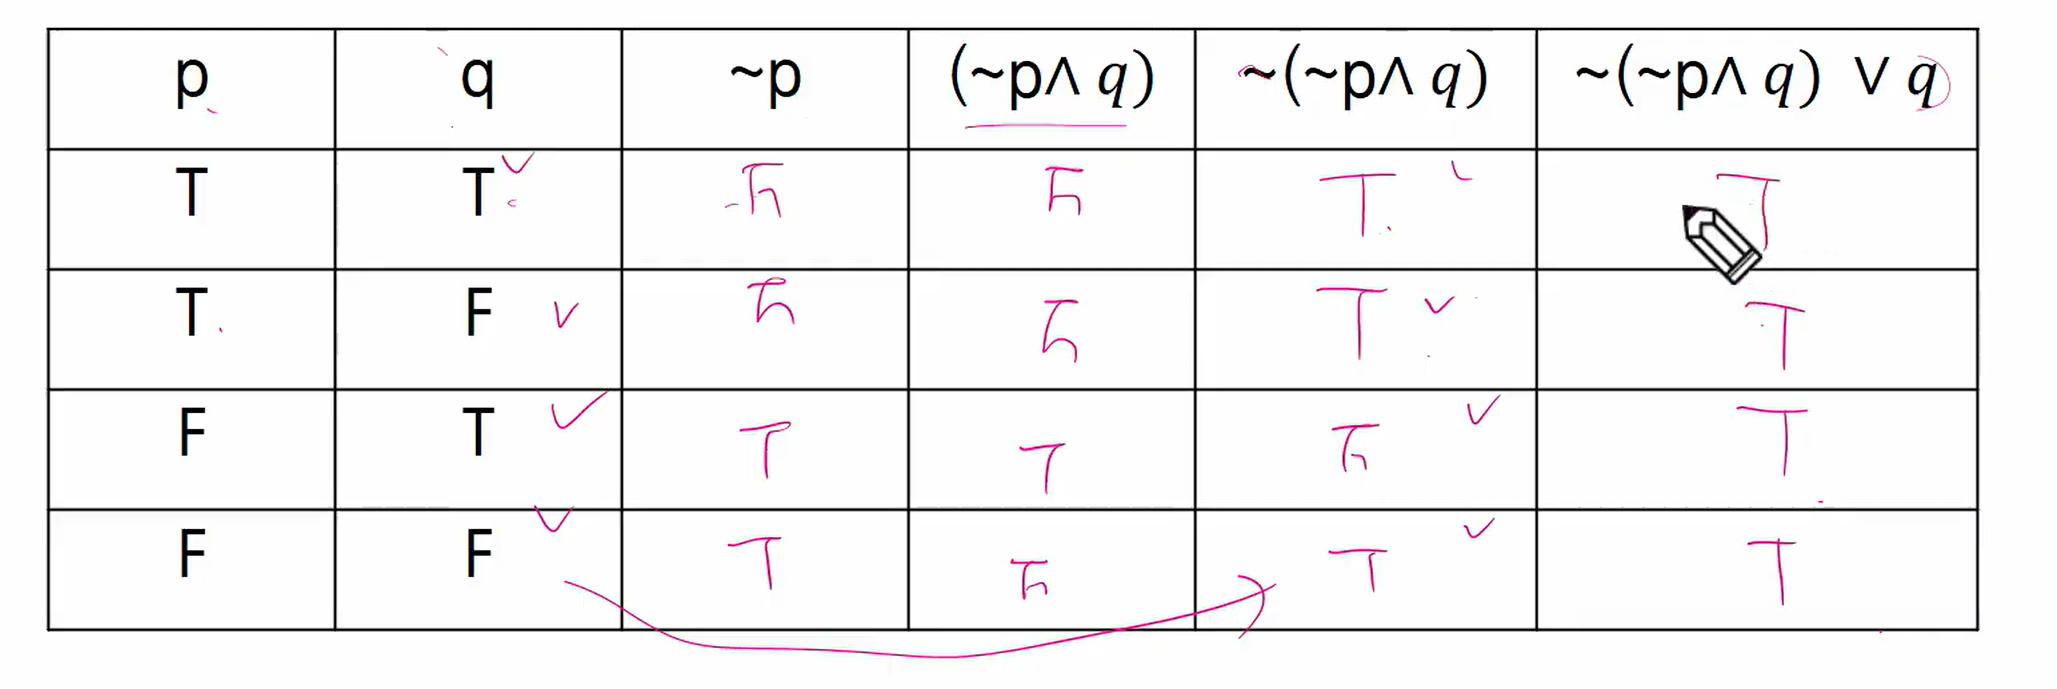 p q ~p (~p∧ q) ~(~p∧ q) ~(~p∧ q) ∨ q
T T F F T T
T F F F T T
F T T T F T
F F T F T T